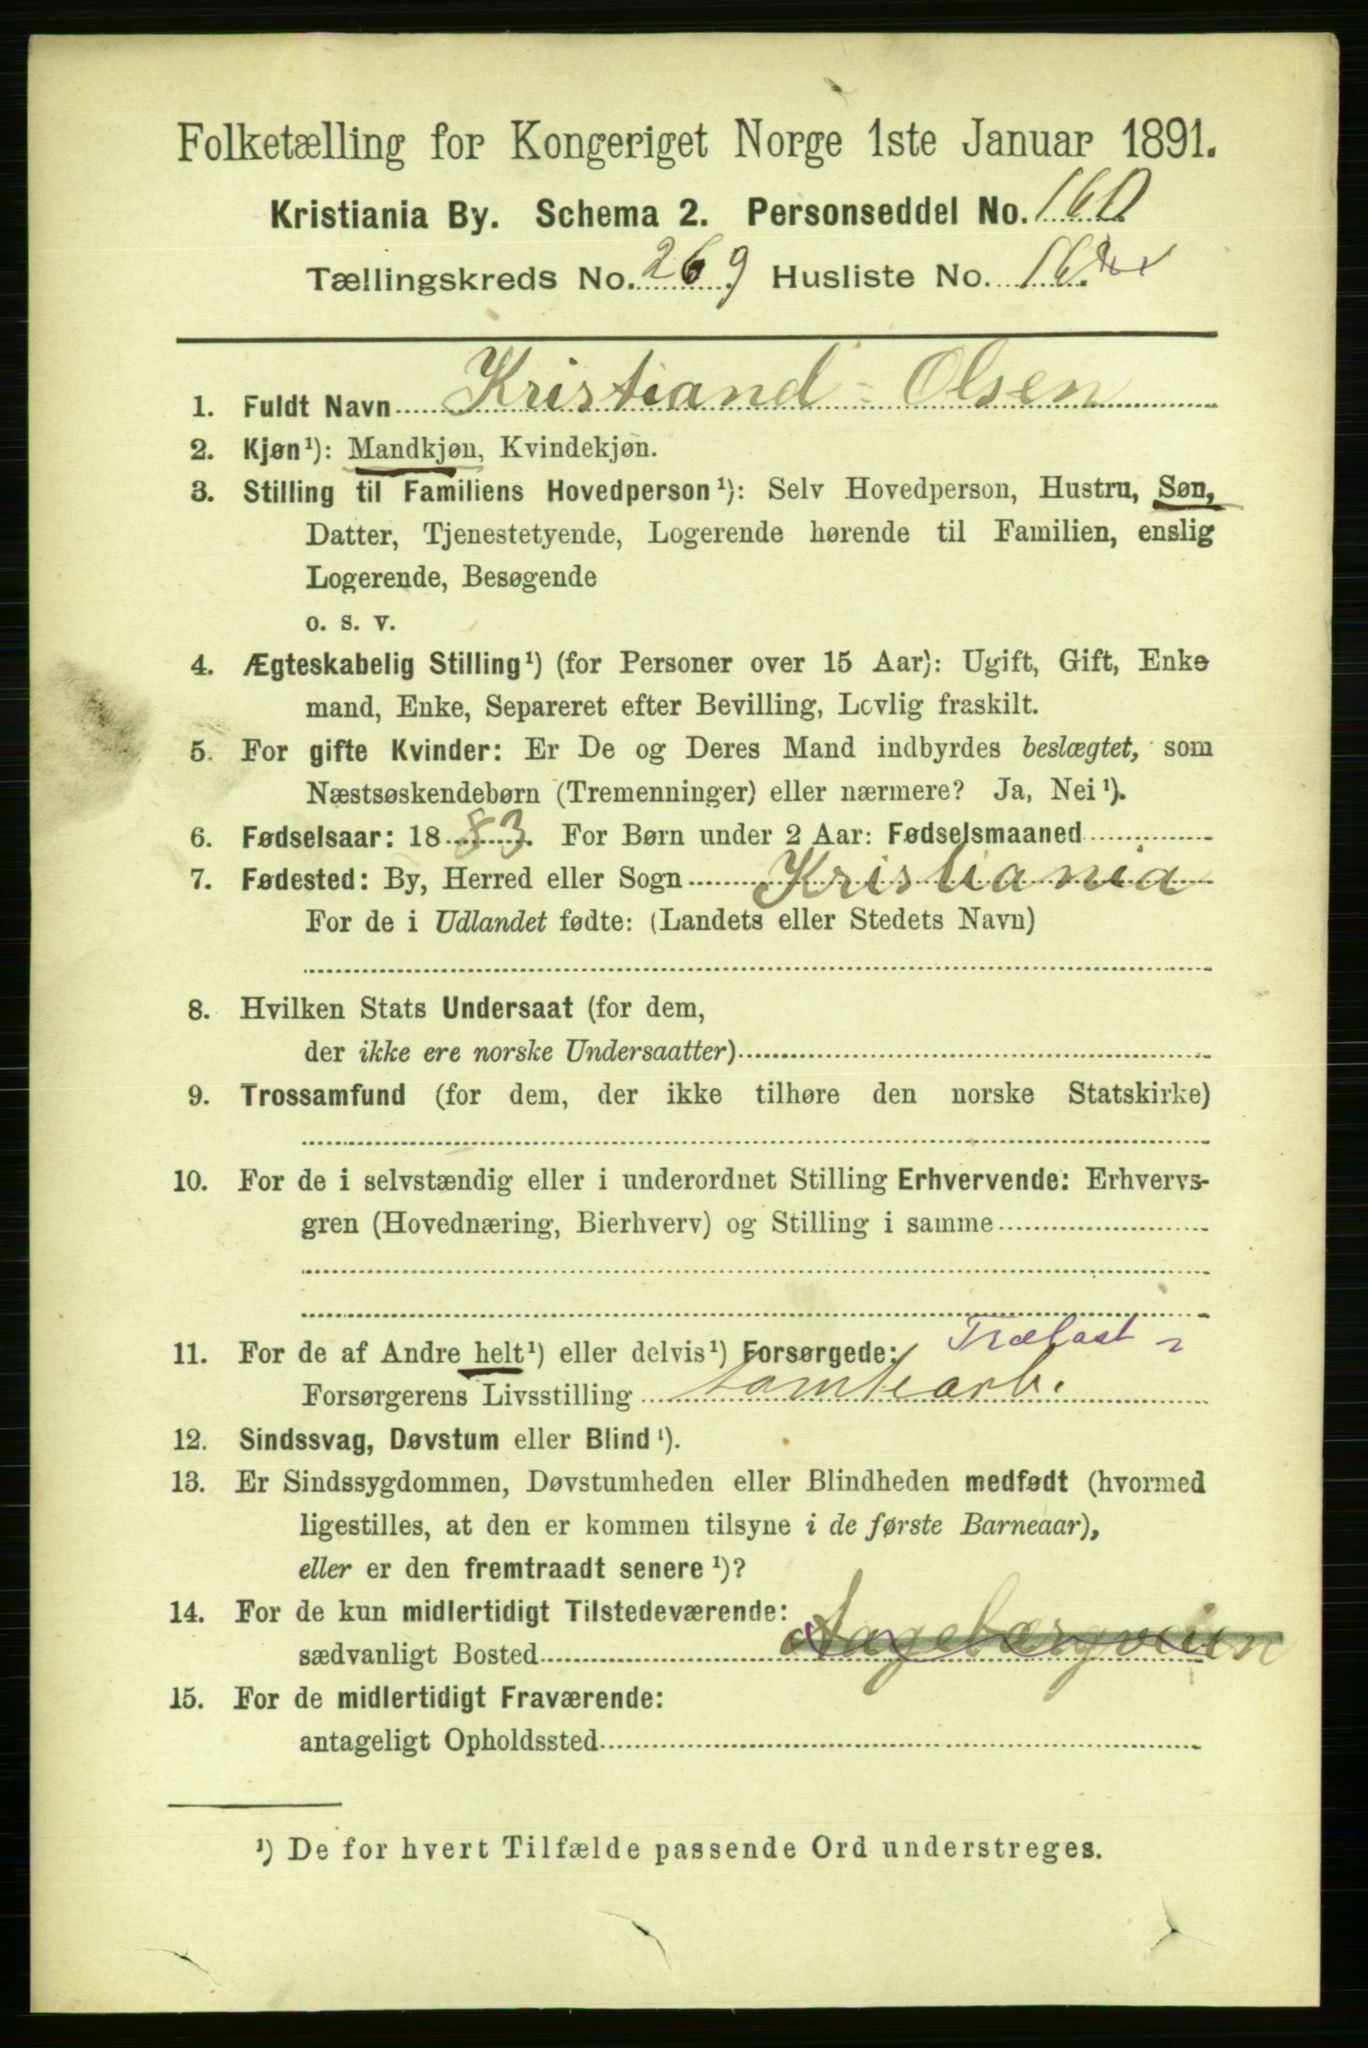 Folketælling for Kongeriget Norge 1ste Januar 1891.
Kristiania By. Schema 2. Personseddel No. 160
Tællingskreds No. 269 Husliste No. 16
1. Fuldt Navn Kristiand Olsen
2. Kjøn¹): Mandkjøn, Kvindekjøn.
3. Stilling til Familiens Hovedperson¹): Selv Hovedperson, Hustru, Søn,
Datter, Tjenestetyende, Logerende hørende til Familien, enslig
Logerende, Besøgende
o. s. v.
4. Ægteskabelig Stilling¹) (for Personer over 15 Aar): Ugift, Gift, Enke
mand, Enke, Separeret efter Bevilling, Lovlig fraskilt.
5. For gifte Kvinder: Er De og Deres Mand indbyrdes beslægtet, som
Næstsøskendebørn (Tremenninger) eller nærmere? Ja, Nei¹).
6. Fødselsaar: 1883. For Børn under 2 Aar: Fødselsmaaned
7. Fødested: By, Herred eller Sogn Kristiania
For de i Udlandet fødte: (Landets eller Stedets Navn)
8. Hvilken Stats Undersaat (for dem,
der ikke ere norske Undersaatter)
9. Trossamfund (for dem, der ikke tilhøre den norske Statskirke)
10. For de i selvstændig eller i underordnet Stilling Erhvervende: Erhvervs-
gren (Hovednæring, Bierhverv) og Stilling i samme
11. For de af Andre helt¹) eller delvis¹) Forsørgede: Trælast-
Forsørgerens Livsstilling tomtearb.
12. Sindssvag, Døvstum eller Blind¹).
13. Er Sindssygdommen, Døvstumheden eller Blindheden medfødt (hvormed
ligestilles, at den er kommen tilsyne i de første Barneaar),
eller er den fremtraadt senere¹)?
14. For de kun midlertidigt Tilstedeværende:
sædvanligt Bosted Aagebærgveien
15. For de midlertidigt Fraværende:
antageligt Opholdssted
¹) De for hvert Tilfælde passende Ord understreges.